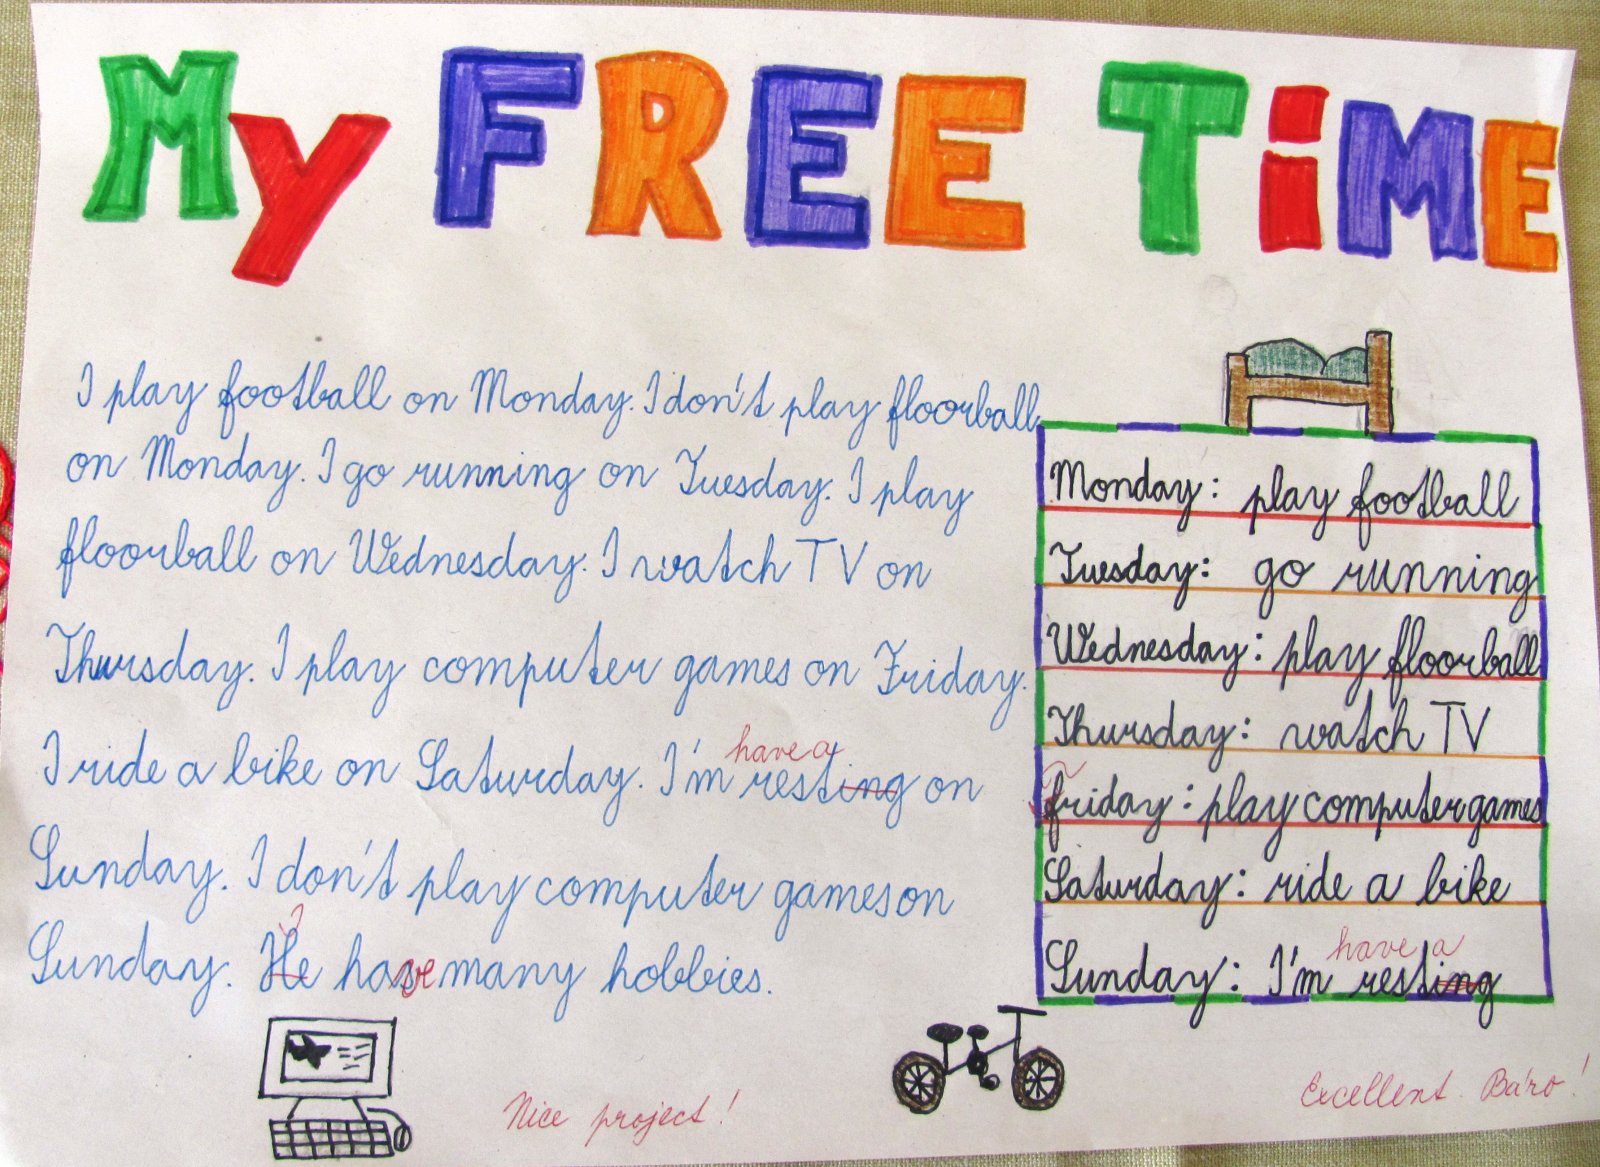 My FREE TiME
I play football on Monday. I don't play floorball
on Monday. I go running on Tuesday. I play
floorball on Wednesday. I watch TV on
Thursday. I play computer games on Friday.
have a
I ride a bike on Saturday. I'm resting on
Sunday. I don't play computer games on
I
Sunday. He have many hobbies.
Monday: play football
Tuesday: go running
Wednesday: play floorball
Thursday: watch TV
Friday: play computer games
Saturday: ride a bike
have a
Sunday: I'm resting
Nice project!
Excellent Báro!